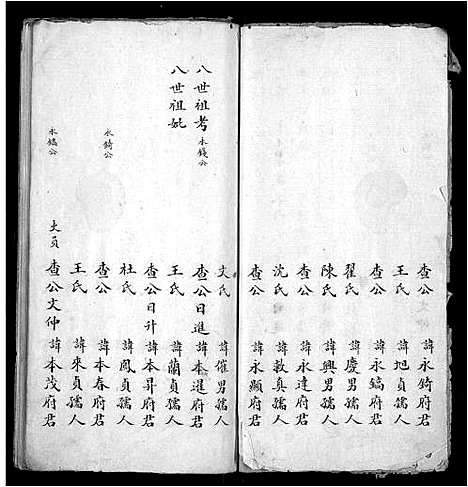 查公 諱永錡府君
王氏 諱旭貞孺人
查公 諱永鎬府君
翟氏 諱慶男孺人
陳氏 諱興男孺人
查公 諱永達府君
沈氏 諱救真孺人
查公 諱永顯府君
文氏 諱催男孺人
八世祖考 永錢公 查公日進 諱本暹府君
八世祖妣 王氏 諱蘭貞孺人
查公日升 諱本昇府君
杜氏 諱鳳貞孺人
永錡公 查公 諱本春府君
王氏 諱來貞孺人
永鎬公 文員 查公文仲 諱本茂府君